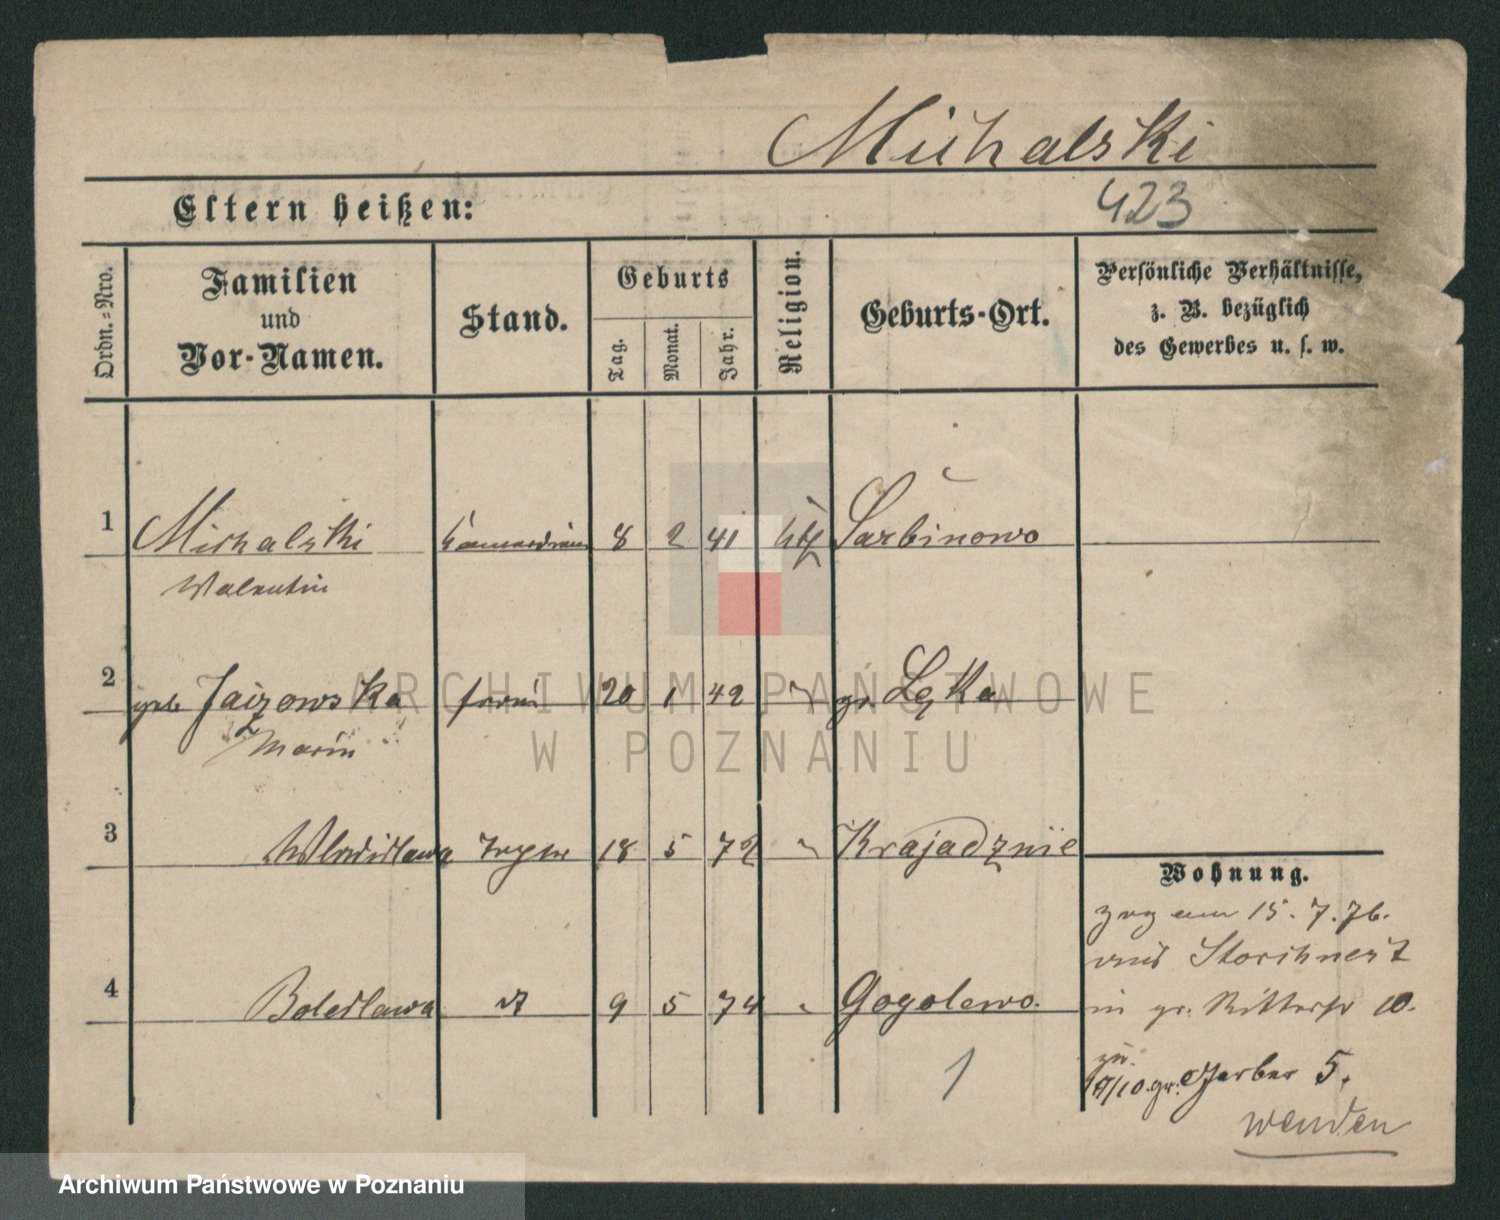 Michalski
423
Eltern heißen:
Ordn.-Nro.
Familien
und
Vor-Namen.
Stand.
Geburts
Tag.
Monat.
Jahr.
Religion.
Geburts-Ort.
Persönliche Verhältnisse,
z. B. bezüglich
des Gewerbes u. s. w.
1 Michalski 8 2 41 kth Sarbinowo
Valentin
2 geb. Jaizowska 20 1 42 " gr. Lęka
Marie
3 Wladislawa 18 5 72 " Krajadznie
4 Boleslawa dt 9 5 74 " Gogolewo.
1
Wohnung.
zog am 15.7.76.
aus Storchnest
in gr. Ritterstr 10.
zu
10. gr. Gerber 5.
wenden
ARCHIWUM PAŃSTWOWE
W POZNANIU
Archiwum Państwowe w Poznaniu